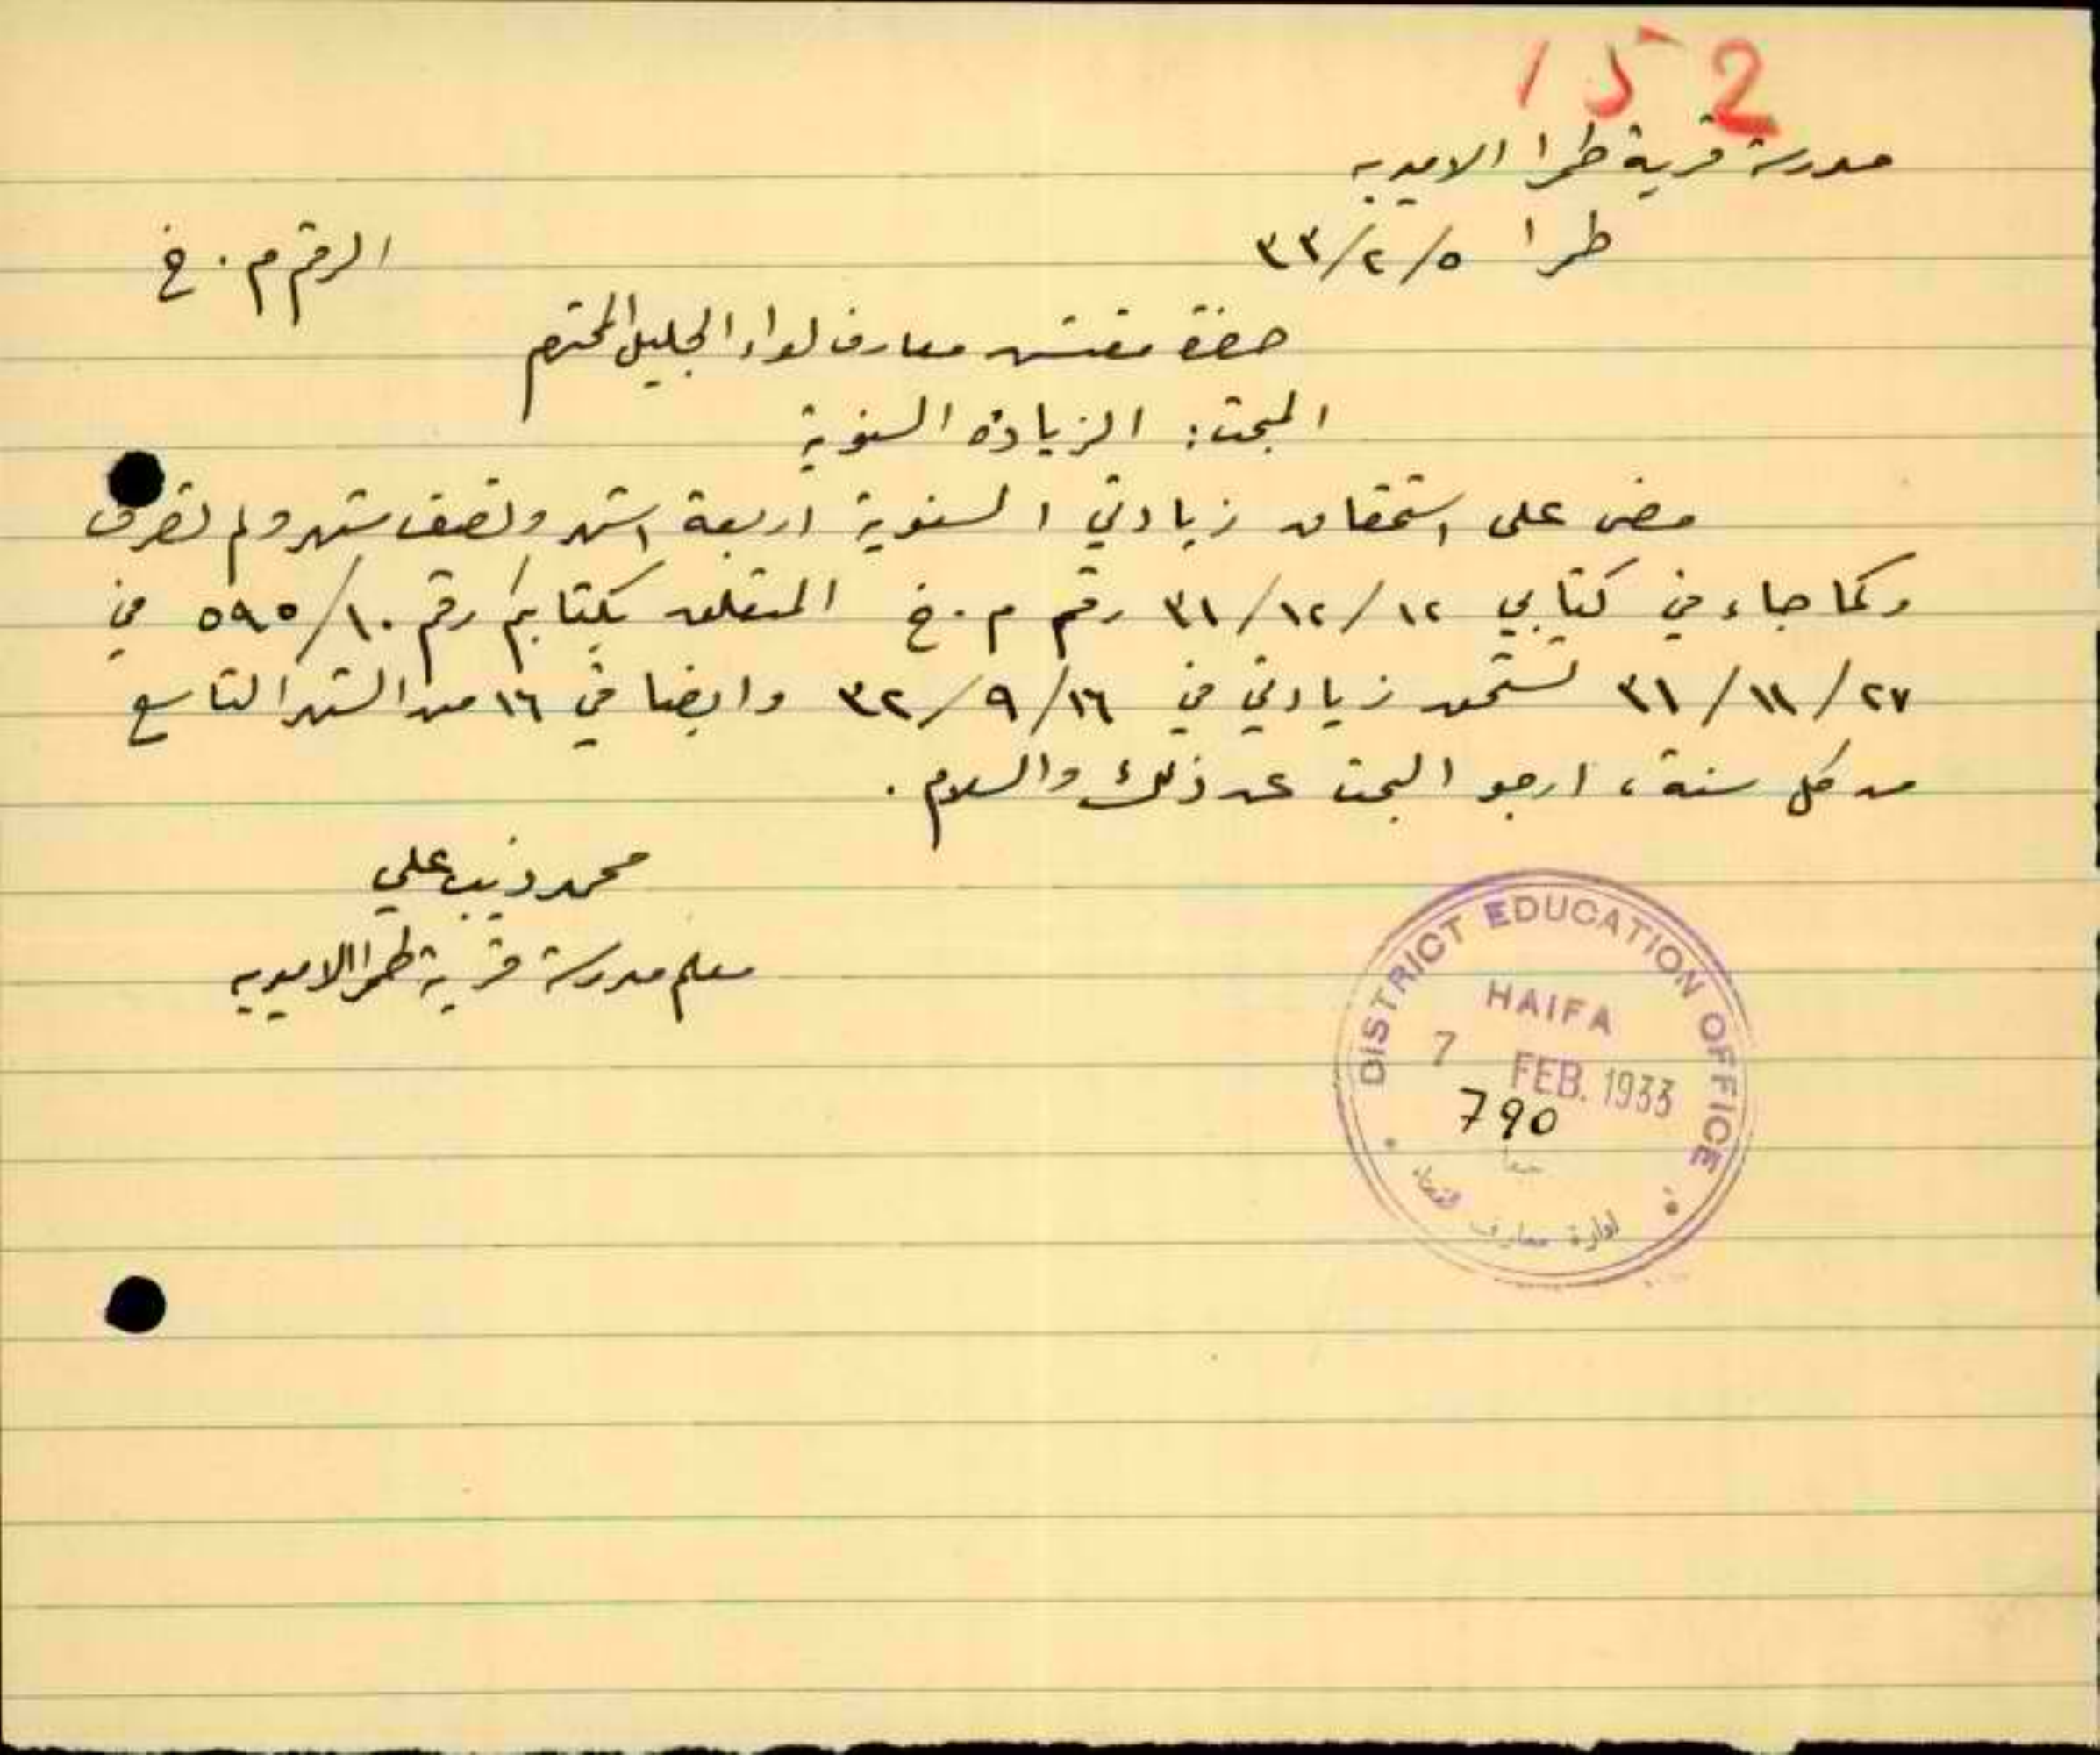 152
مدرسة قرية طمرا الاميرية
طمرا ٥/٢/٣٣
الرقم م.خ
حضرة مفتش معارف لواء الجليل المحترم
المبحث: الزيادة السنوية
مضى على استحقاق زيادتي السنوية اربعة اشهر ونصف شهر ولم تصرف
وكما جاء في كتابي ١٢/١٢/٣١ رقم م.خ المتعلق بكتابكم رقم ٥٩٥/١٠ في
٢٧/١١/٣١ تستحق زيادتي في ١٦/٩/٣٢ وايضا في ١٦ من الشهر التاسع
من كل سنة، ارجو البحث عن ذلك والسلام.
محمد ذيب علي
معلم مدرسة قرية طمرا الاميرية
DISTRICT EDUCATION OFFICE
HAIFA
7 FEB. 1933
790
ادارة معارف